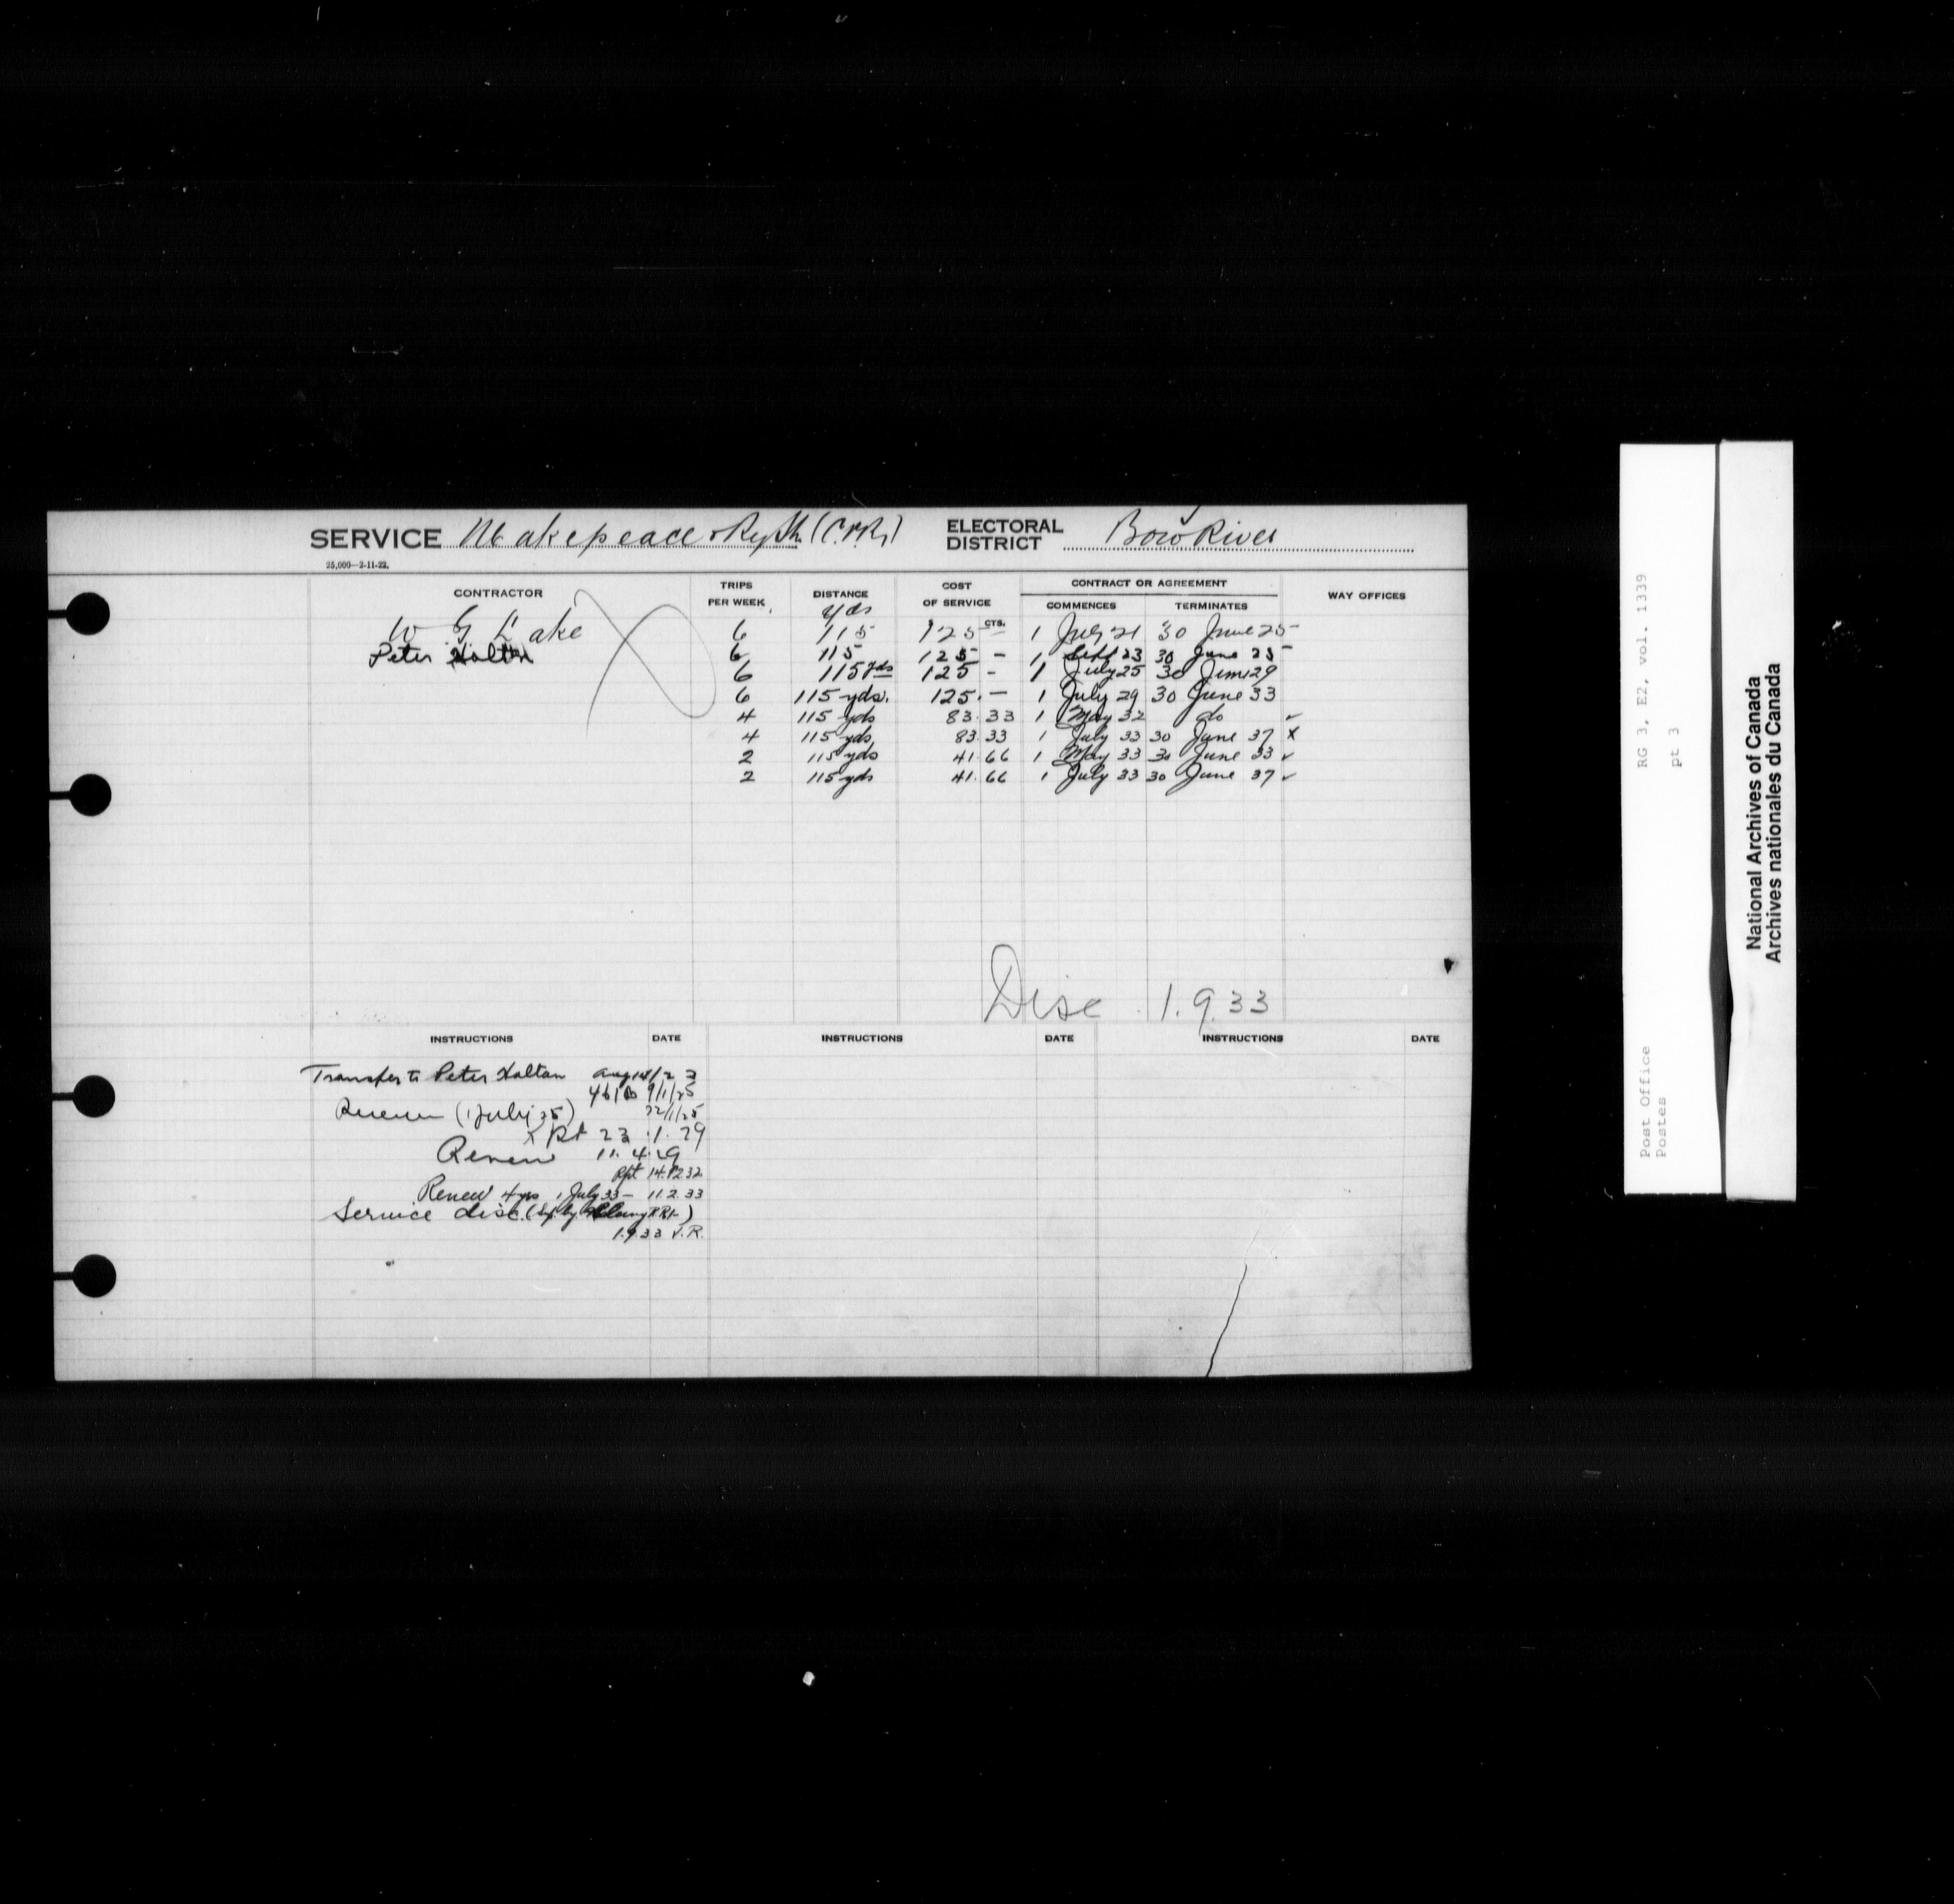 SERVICE Makepeace & Ry Stn (C.P.R.) ELECTORAL DISTRICT Bow River
25,000—2-11-22.
CONTRACTOR TRIPS PER WEEK DISTANCE COST OF SERVICE CONTRACT OR AGREEMENT COMMENCES TERMINATES WAY OFFICES
yds CTS.
W. G. Lake 6 115 125 — 1 July 21 30 June 25
Peter Holtan 6 115 125 — 1 Sept 23 30 June 25
6 115 yds 125 - 1 July 25 30 June 29
6 115 yds. 125. — 1 July 29 30 June 33
4 115 yds 83.33 1 May 32 do ✓
4 115 yds 83.33 1 July 33 30 June 37 X
2 115 yds 41.66 1 May 33 30 June 33 ✓
2 115 yds 41.66 1 July 33 30 June 37 ✓
Disc 1.9.33
INSTRUCTIONS DATE INSTRUCTIONS DATE INSTRUCTIONS DATE
Transfer to Peter Holtan Aug 14/23
9/1/25
Renew (1 July 25) 22/1/25
X Rpt 23.1.29
Renew 11.4.29
Rpt 14.12.32
Renew 4 yrs 1 July 33 — 11.2.33
Service disc.
1.9.33 J.R.
RG 3, E2, vol. 1339
pt 3
Post Office
Postes
National Archives of Canada
Archives nationales du Canada